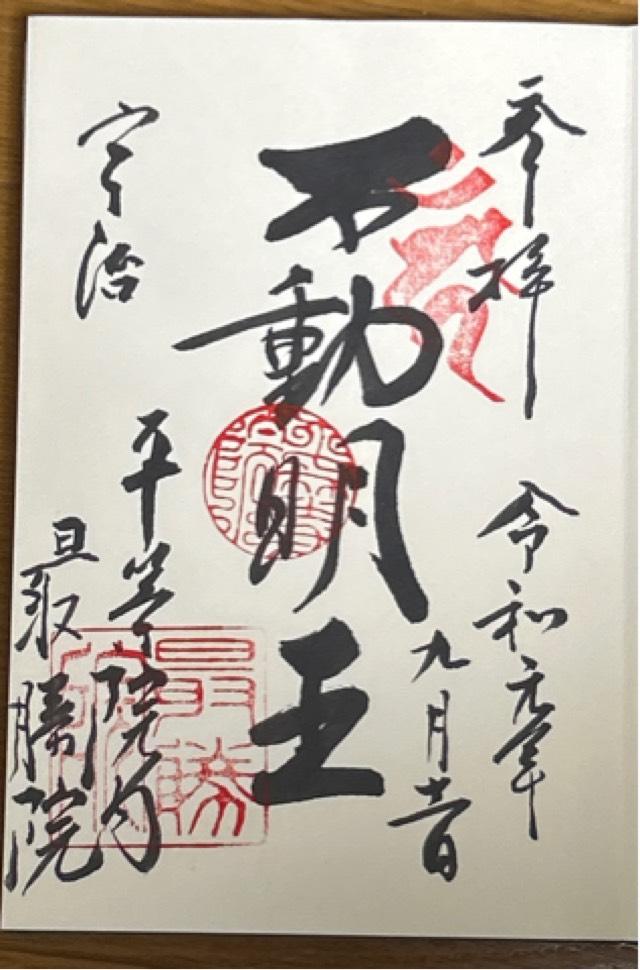 参拝
令和元年
九月
不動明王
宇治
平等院内
最勝院
最勝